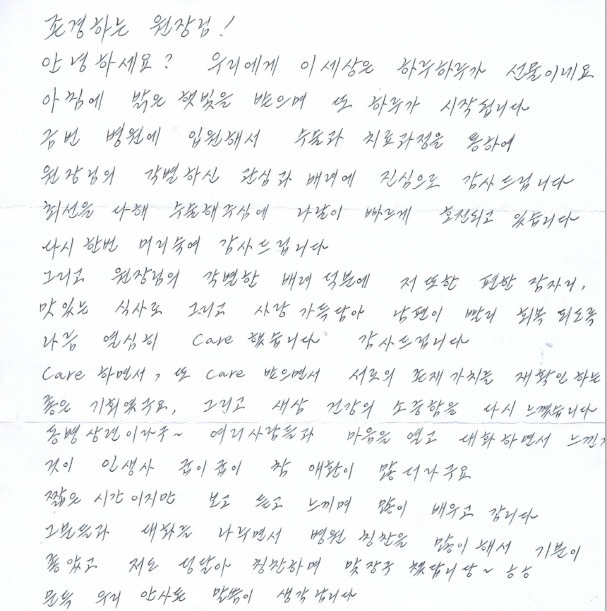 존경하는 원장님!
안녕하세요? 우리에게 이세상은 하루하루가 선물이네요
아침에 밝은 햇빛을 받으며 또 하루가 시작됩니다
금번 병원에 입원해서 수술과 치료과정을 통하여
원장님의 각별하신 관심과 배려에 진심으로 감사드립니다
최선을 다해 수술해주심에 나날이 빠르게 호전되고 있습니다
다시 한번 머리숙여 감사드립니다
그리고 원장님의 각별한 배려 덕분에 저 또한 편한 잠자리,
맛있는 식사로 그리고 사랑 가득담아 남편이 빨리 회복 되도록
나름 열심히 Care 했습니다 감사드립니다
Care 하면서, 또 Care 받으면서 서로의 존재가치를 재확인하는
좋은 기회였구요, 그리고 새삼 건강의 소중함을 다시 느꼈습니다
동병상련이라구~ 여러사람들과 마음을 열고 대화하면서 느낀
것이 인생사 굽이굽이 참 애환이 많더라구요
짧은 시간이지만 보고 듣고 느끼며 많이 배우고 갑니다
그분들과 대화를 나누면서 병원 칭찬을 많이해서 기분이
좋았고 저도 덩달아 칭찬하며 맞장구 쳤답니당~ ㅎㅎ
문득 우리 안사돈 말씀이 생각납니다